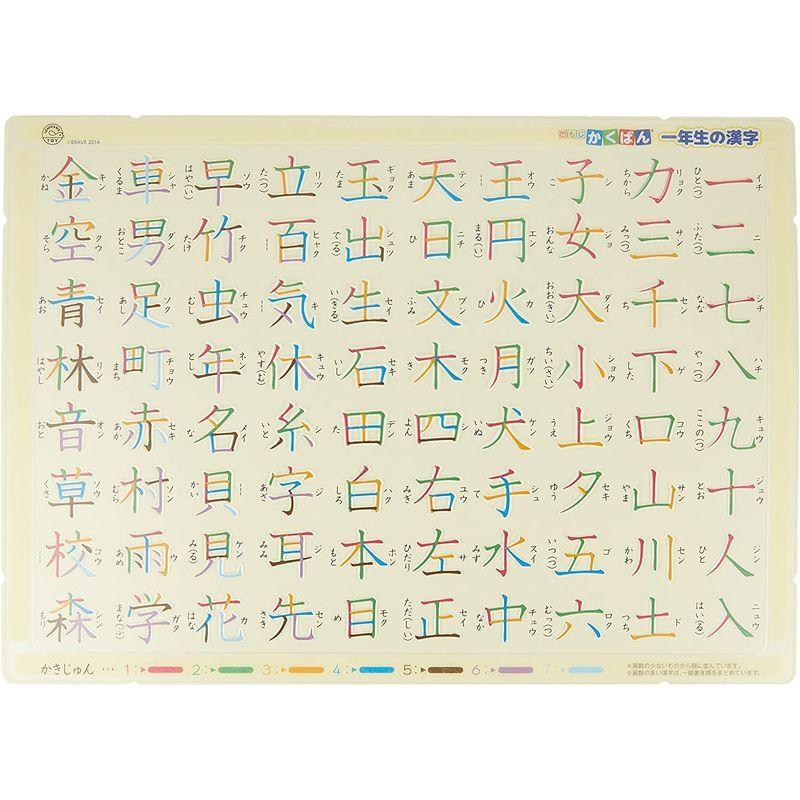 ©BRAVE 2014
凹もじ かくばん 一年生の漢字
一 イチ ひと(つ)
二 ニ ふた(つ)
七 シチ なな
八 ハチ や(つ)
九 キュウ ここの(つ)
十 ジュウ とお
人 ジン ひと
入 ニュウ はい(る)
力 リョク ちから
三 サン みっ(つ)
千 セン ち
下 ゲ した
口 コウ くち
山 サン やま
川 セン かわ
土 ド つち
子 シ こ
女 ジョ おんな
大 ダイ おお(きい)
小 ショウ ちい(さい)
上 ジョウ うえ
夕 セキ ゆう
五 ゴ いつ(つ)
六 ロク むっ(つ)
王 オウ
円 エン まる(い)
火 カ ひ
月 ガツ つき
犬 ケン いぬ
手 シュ て
水 スイ みず
中 チュウ なか
天 テン あま
日 ニチ ひ
文 ブン ふみ
木 モク き
四 シ よん
右 ユウ みぎ
左 サ ひだり
正 セイ ただ(しい)
玉 ギョク たま
出 シュツ で(る)
生 セイ い(きる)
石 セキ いし
田 デン た
白 ハク しろ
本 ホン もと
目 モク め
立 リツ た(つ)
百 ヒャク
気 キ
休 キュウ やす(む)
糸 シ いと
字 ジ あざ
耳 ジ みみ
先 セン さき
早 ソウ はや(い)
竹 チク たけ
虫 チュウ むし
年 ネン とし
名 メイ な
貝 かい
見 ケン み(る)
花 カ はな
車 シャ くるま
男 ダン おとこ
足 ソク あし
町 チョウ まち
赤 セキ あか
村 ソン むら
雨 ウ あめ
学 ガク まな(ぶ)
金 キン かね
空 クウ そら
青 セイ あお
林 リン はやし
音 オン おと
草 ソウ くさ
校 コウ
森 シン もり
かきじゅん … 1: 2: 3: 4: 5: 6: 7:
※画数の少ないものから順に並んでいます。
※画数の多い漢字は、一部書き順をまとめています。